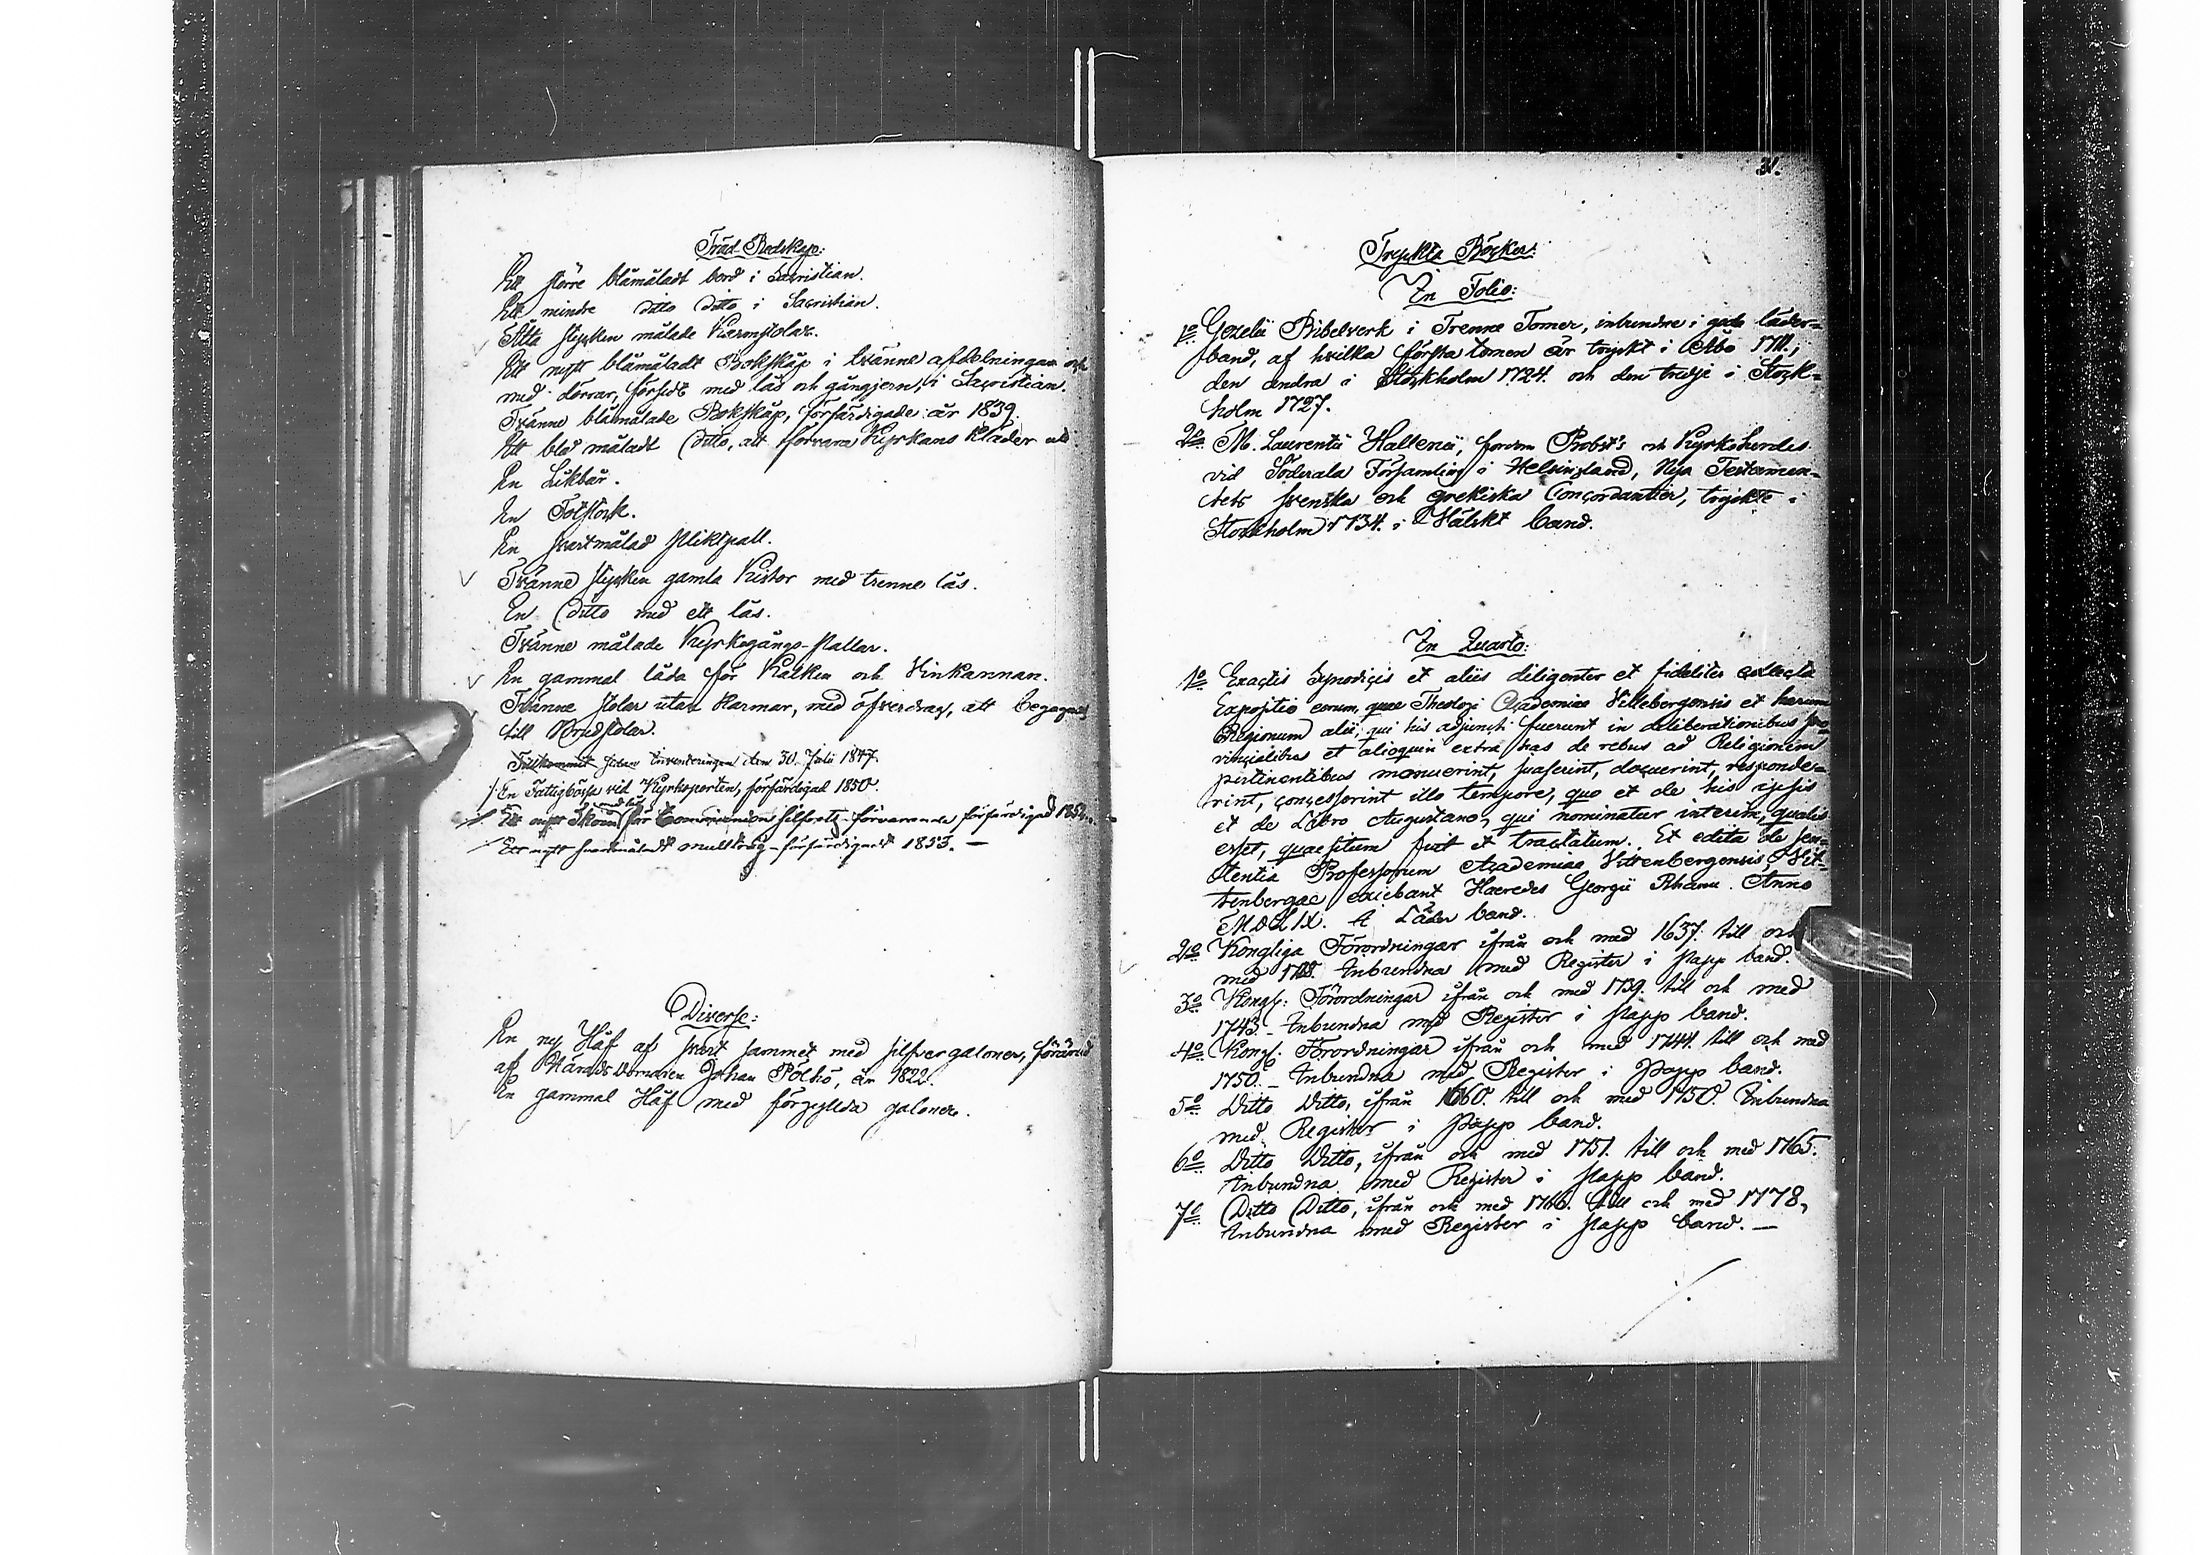 Träd Redskap:
Ett större blåmåladt bord i Sacristian.
Ett mindre ditto ditto i Sacristian.
Åtta stycken målade Karmstolar.
Ett nytt blåmåladt Bokskåp i tvänne afdelningar och
med dörrar, försedt med lås och gångjern, i Sacristian.
Tvänne blåmålade Bokskåp, förfärdigade år 1839.
Ett blå måladt ditto, att förvara Kyrkans Kläder uti
En Likbår.
En Fotstock.
En svartmålad pliktpall.
Tvänne stycken gamla Kistor med trenne lås.
En ditto med ett lås.
Tvänne målade Kyrkogångs-pallar.
En gammal låda för Kalken och Vinkannan.
Tvänne stolar utan Karmar, med öfverdrag, att begagnas
till Brudstolar.
Tillkommit sedan Inventeringen den 30. Julii 1847.
1. En Fattigbössa vid Kyrkoporten, förfärdigad 1850.
Ett nytt Skrin med lås för Communion silfrets förvarande förfärdigad 1852.
Ett nytt svartmåladt mulltråg förfärdigadt 1853. —
Diverse:
En ny Håf af svart sammet med silfver galoner, förärad
af Häradsdomaren Johan Pölsö, år 1822.
En gammal Håf med förgyllda galoner.
31.
Tryckta Böcker:
In Folio:
1o Gezelii Bibelverk i Trenne Tomer, inbundne i goda läder=
band, af hvilka första tomen är tryckt i Åbo 1711.;
den andra i Stockholm 1724. och den tredje i Stock=
holm 1727.
2o M. Laurentii Hallenii, fordom Probst's och Kyrkoherdes
vid Söderala Församling i Helsingland, Nya Testamen=
tets svenska och grekiska Concordantier, tryckte i
Stockholm 1734. i Wälskt band.
In Quarto:
1o Exactis Synodicis et aliis diligenter et fideliter collecta
Expositio eorum, quae Theologi Academiae Vittebergensis et harum
Regionum alii, qui his adjuncti fuerunt in deliberationibus pro=
vincialibus et alioquin extra has de rebus ad Religionem
pertinentibus monuerint, suaserint, docuerint, responde=
rint, concesserint illo tempore, quo et de his ipsis
et de Libro Augustano, qui nominatur interim, qualis
esset, quaesitum fuit et tractatum. Et edita de sen=
tentia Professorum Academiae Vittenbergensis. Vit=
tenbergae exciebant Haeredes Georgii Rhaeu. Anno
MDLIX. i Läder band.
2o Kongliga Förordningar ifrån och med 1657. till och
med Inbundna med Register i papp band.
3o Kongl: Förordningar ifrån och med 1739. till och med
1743. – Inbundna med Register i papp band.
4o Kongl: Förordningar ifrån och med 1744. till och med
1750. – Inbundna med Register i papp band.
5o Ditto Ditto, ifrån 1660. till och med 1750. Inbundna
med Register i papp band.
6o Ditto Ditto, ifrån och med 1751. till och med 1765.
Inbundna med Register i papp band.
7o Ditto Ditto, ifrån och med 1766. till och med 1778,
Inbundna med Register i papp band. —